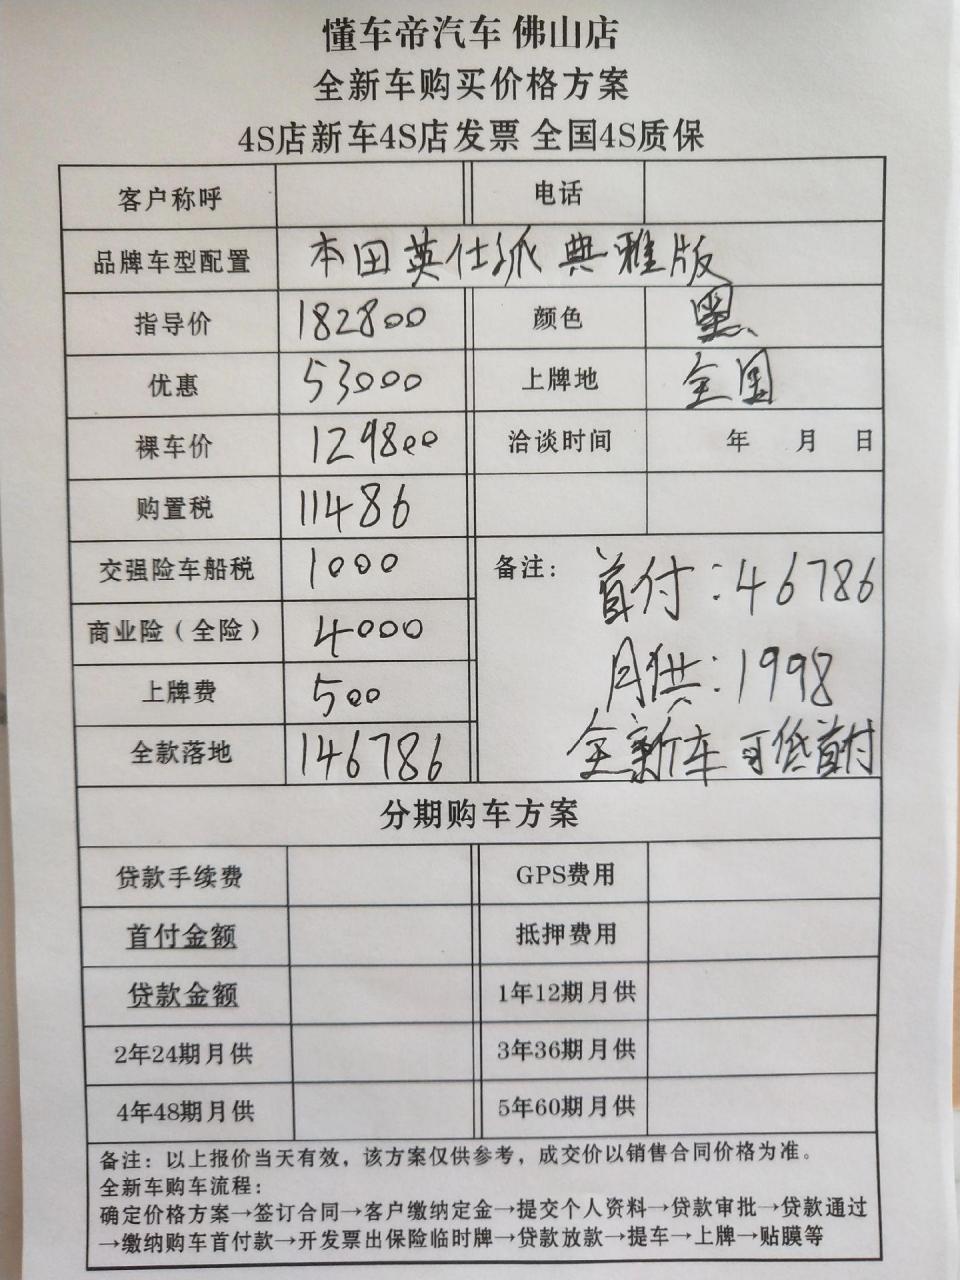 懂车帝汽车 佛山店
全新车购买价格方案
4S店新车4S店发票 全国4S质保
客户称呼 电话
品牌车型配置 本田英仕派典雅版
指导价 182800 颜色 黑
优惠 53000 上牌地 全国
裸车价 129800 洽谈时间 年 月 日
购置税 11486
交强险车船税 1000 备注: 首付:46786
商业险（全险） 4000 月供:1998
上牌费 500
全款落地 146786 全新车可低首付
分期购车方案
贷款手续费 GPS费用
首付金额 抵押费用
贷款金额 1年12期月供
2年24期月供 3年36期月供
4年48期月供 5年60期月供
备注：以上报价当天有效，该方案仅供参考，成交价以销售合同价格为准。
全新车购车流程：
确定价格方案→签订合同→客户缴纳定金→提交个人资料→贷款审批→贷款通过
→缴纳购车首付款→开发票出保险临时牌→贷款放款→提车→上牌→贴膜等